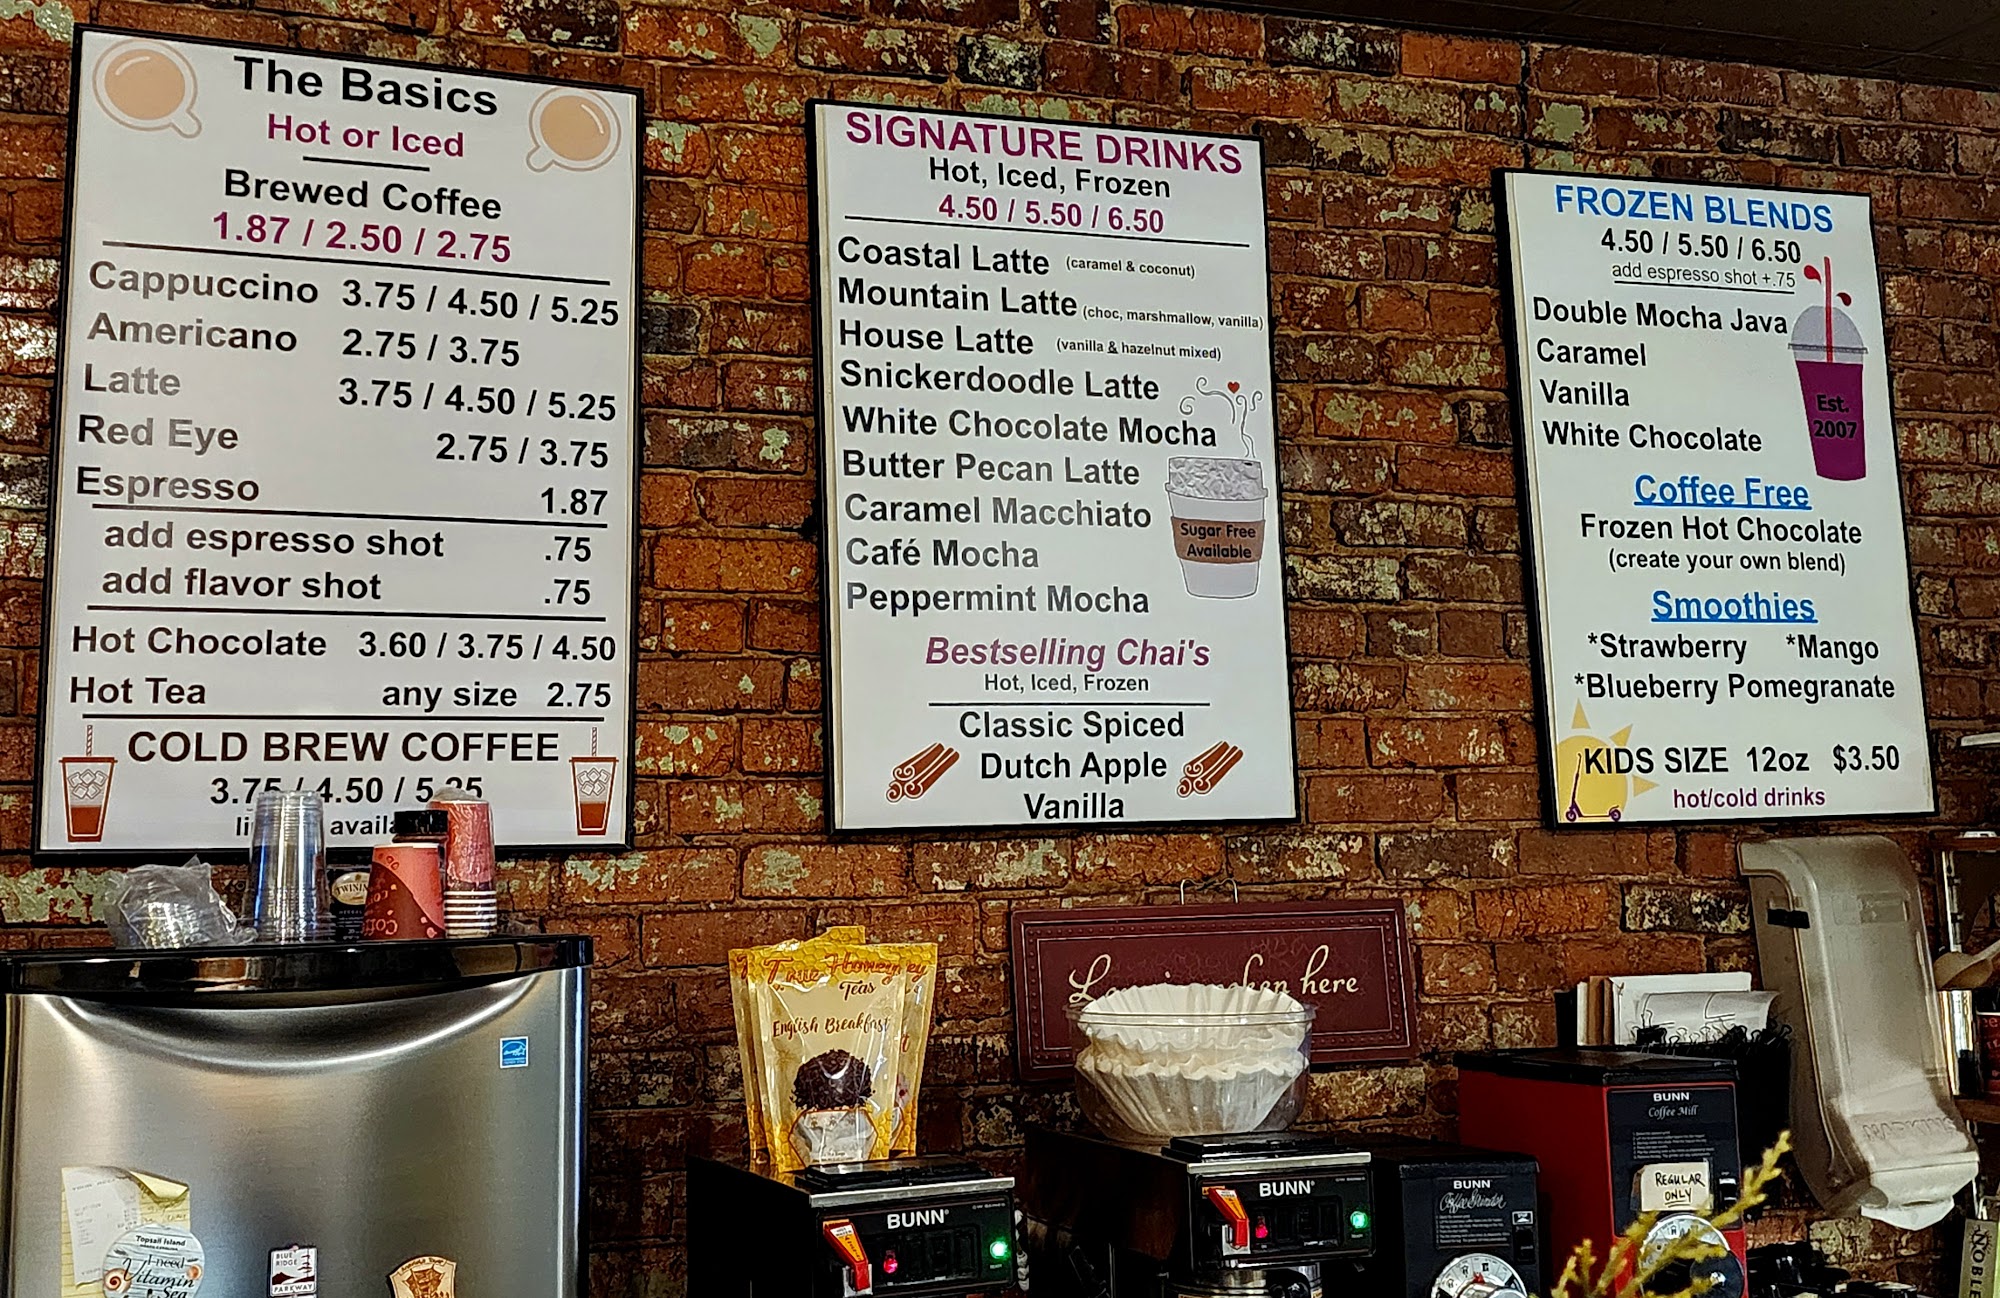 The Basics
Hot or Iced
Brewed Coffee
1.87 / 2.50 / 2.75
Cappuccino 3.75 / 4.50 / 5.25
Americano 2.75 / 3.75
Latte 3.75 / 4.50 / 5.25
Red Eye 2.75 / 3.75
Espresso 1.87
add espresso shot .75
add flavor shot .75
Hot Chocolate 3.60 / 3.75 / 4.50
Hot Tea any size 2.75
COLD BREW COFFEE
3.75 / 4.50 / 5.25
SIGNATURE DRINKS
Hot, Iced, Frozen
4.50 / 5.50 / 6.50
Coastal Latte (caramel & coconut)
Mountain Latte (choc, marshmallow, vanilla)
House Latte (vanilla & hazelnut mixed)
Snickerdoodle Latte
White Chocolate Mocha
Butter Pecan Latte
Caramel Macchiato
Café Mocha
Peppermint Mocha
Sugar Free
Available
Bestselling Chai's
Hot, Iced, Frozen
Classic Spiced
Dutch Apple
Vanilla
FROZEN BLENDS
4.50 / 5.50 / 6.50
add espresso shot +.75
Double Mocha Java
Caramel
Vanilla
White Chocolate
Est.
2007
Coffee Free
Frozen Hot Chocolate
(create your own blend)
Smoothies
*Strawberry *Mango
*Blueberry Pomegranate
KIDS SIZE 12oz $3.50
hot/cold drinks
True Honey
Teas
English Breakfast
here
BUNN
BUNN
BUNN
Coffee Grinder
BUNN
Coffee Mill
REGULAR
ONLY
Topsail Island
I need
Vitamin
Sea
BLUE
RIDGE
PARKWAY